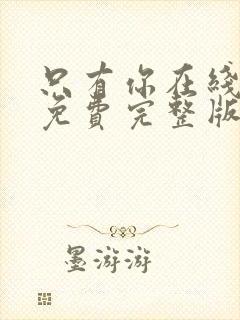 只有你在线
免费完整版
墨游游